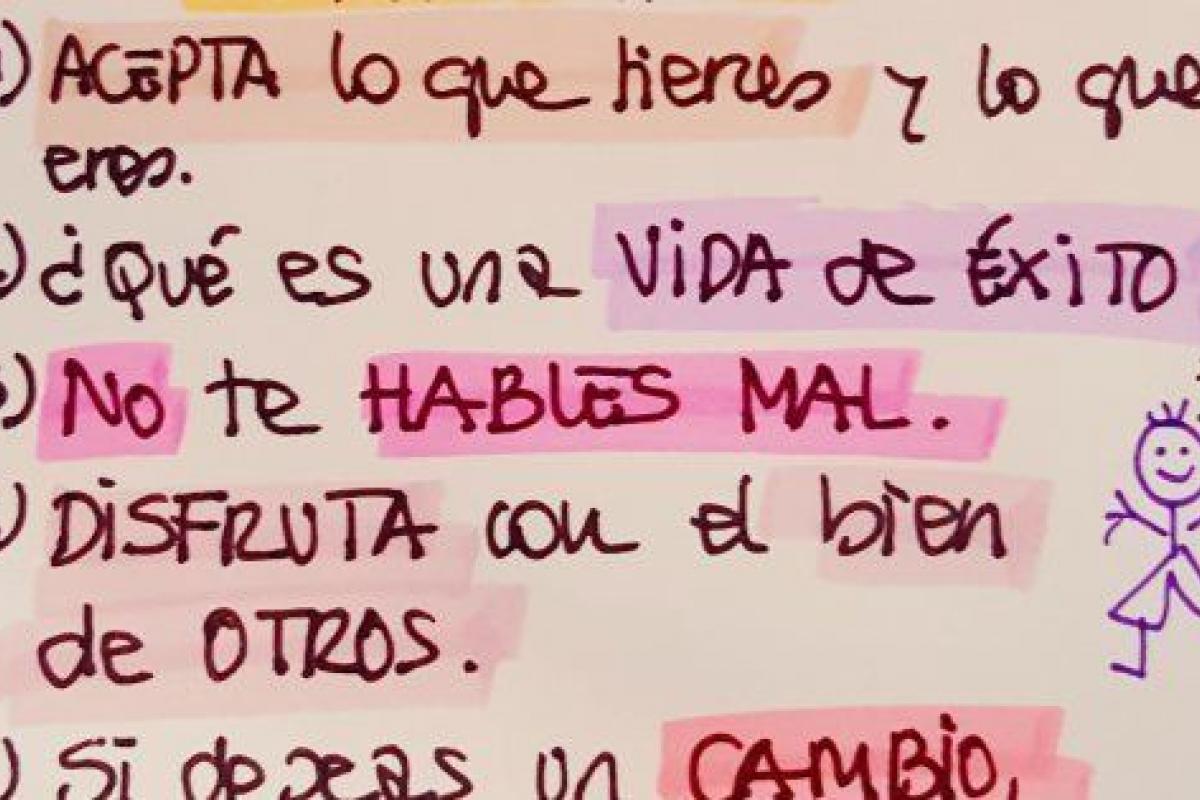 ) ACEPTA lo que tienes y lo que
eres.
) ¿Qué es una VIDA de ÉXITO
) No te HABLES MAL.
) DISFRUTA con el bien
de OTROS.
) Si deseas un CAMBIO,